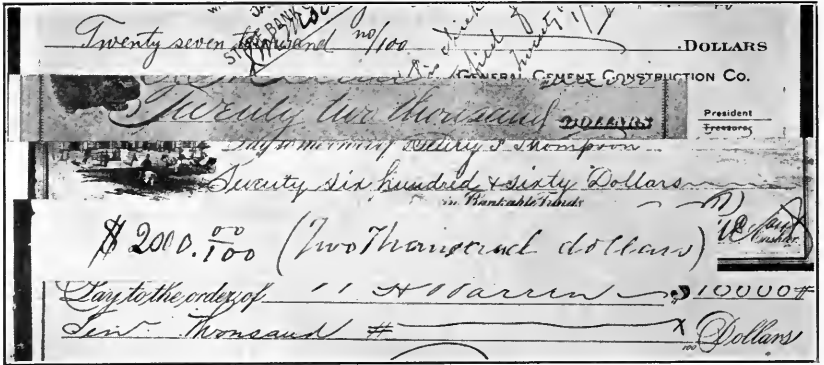 STATE BANK
Twenty seven thousand no/100 DOLLARS
GENERAL CEMENT CONSTRUCTION CO.
Twenty two thousand DOLLARS
President
Treasurer
Pay to my order P. Thompson
Twenty six hundred & sixty Dollars
in Bankable Funds
$2000.00/100 (Two Thousand dollars)
Cashier
Pay to the order of H Warren $10000#
Ten Thousand # x/100 Dollars